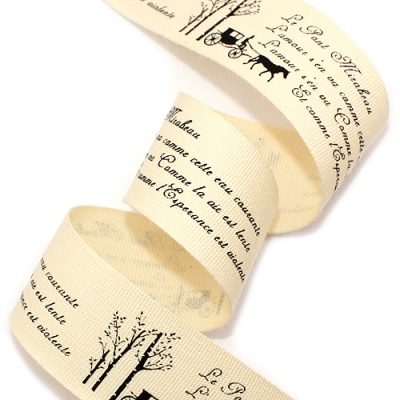 aiolente
Le Pont Mirabeau
L'amour s'en va comme cette
L'amour s'en va Comme la
Et comme l'Esperance
Mirabeau
va comme cette eau courante
va Comme la aie est lente
comme l'Esperance est aiolente
eau courante
aie est lente
est aiolente
Le Pont
L'amour